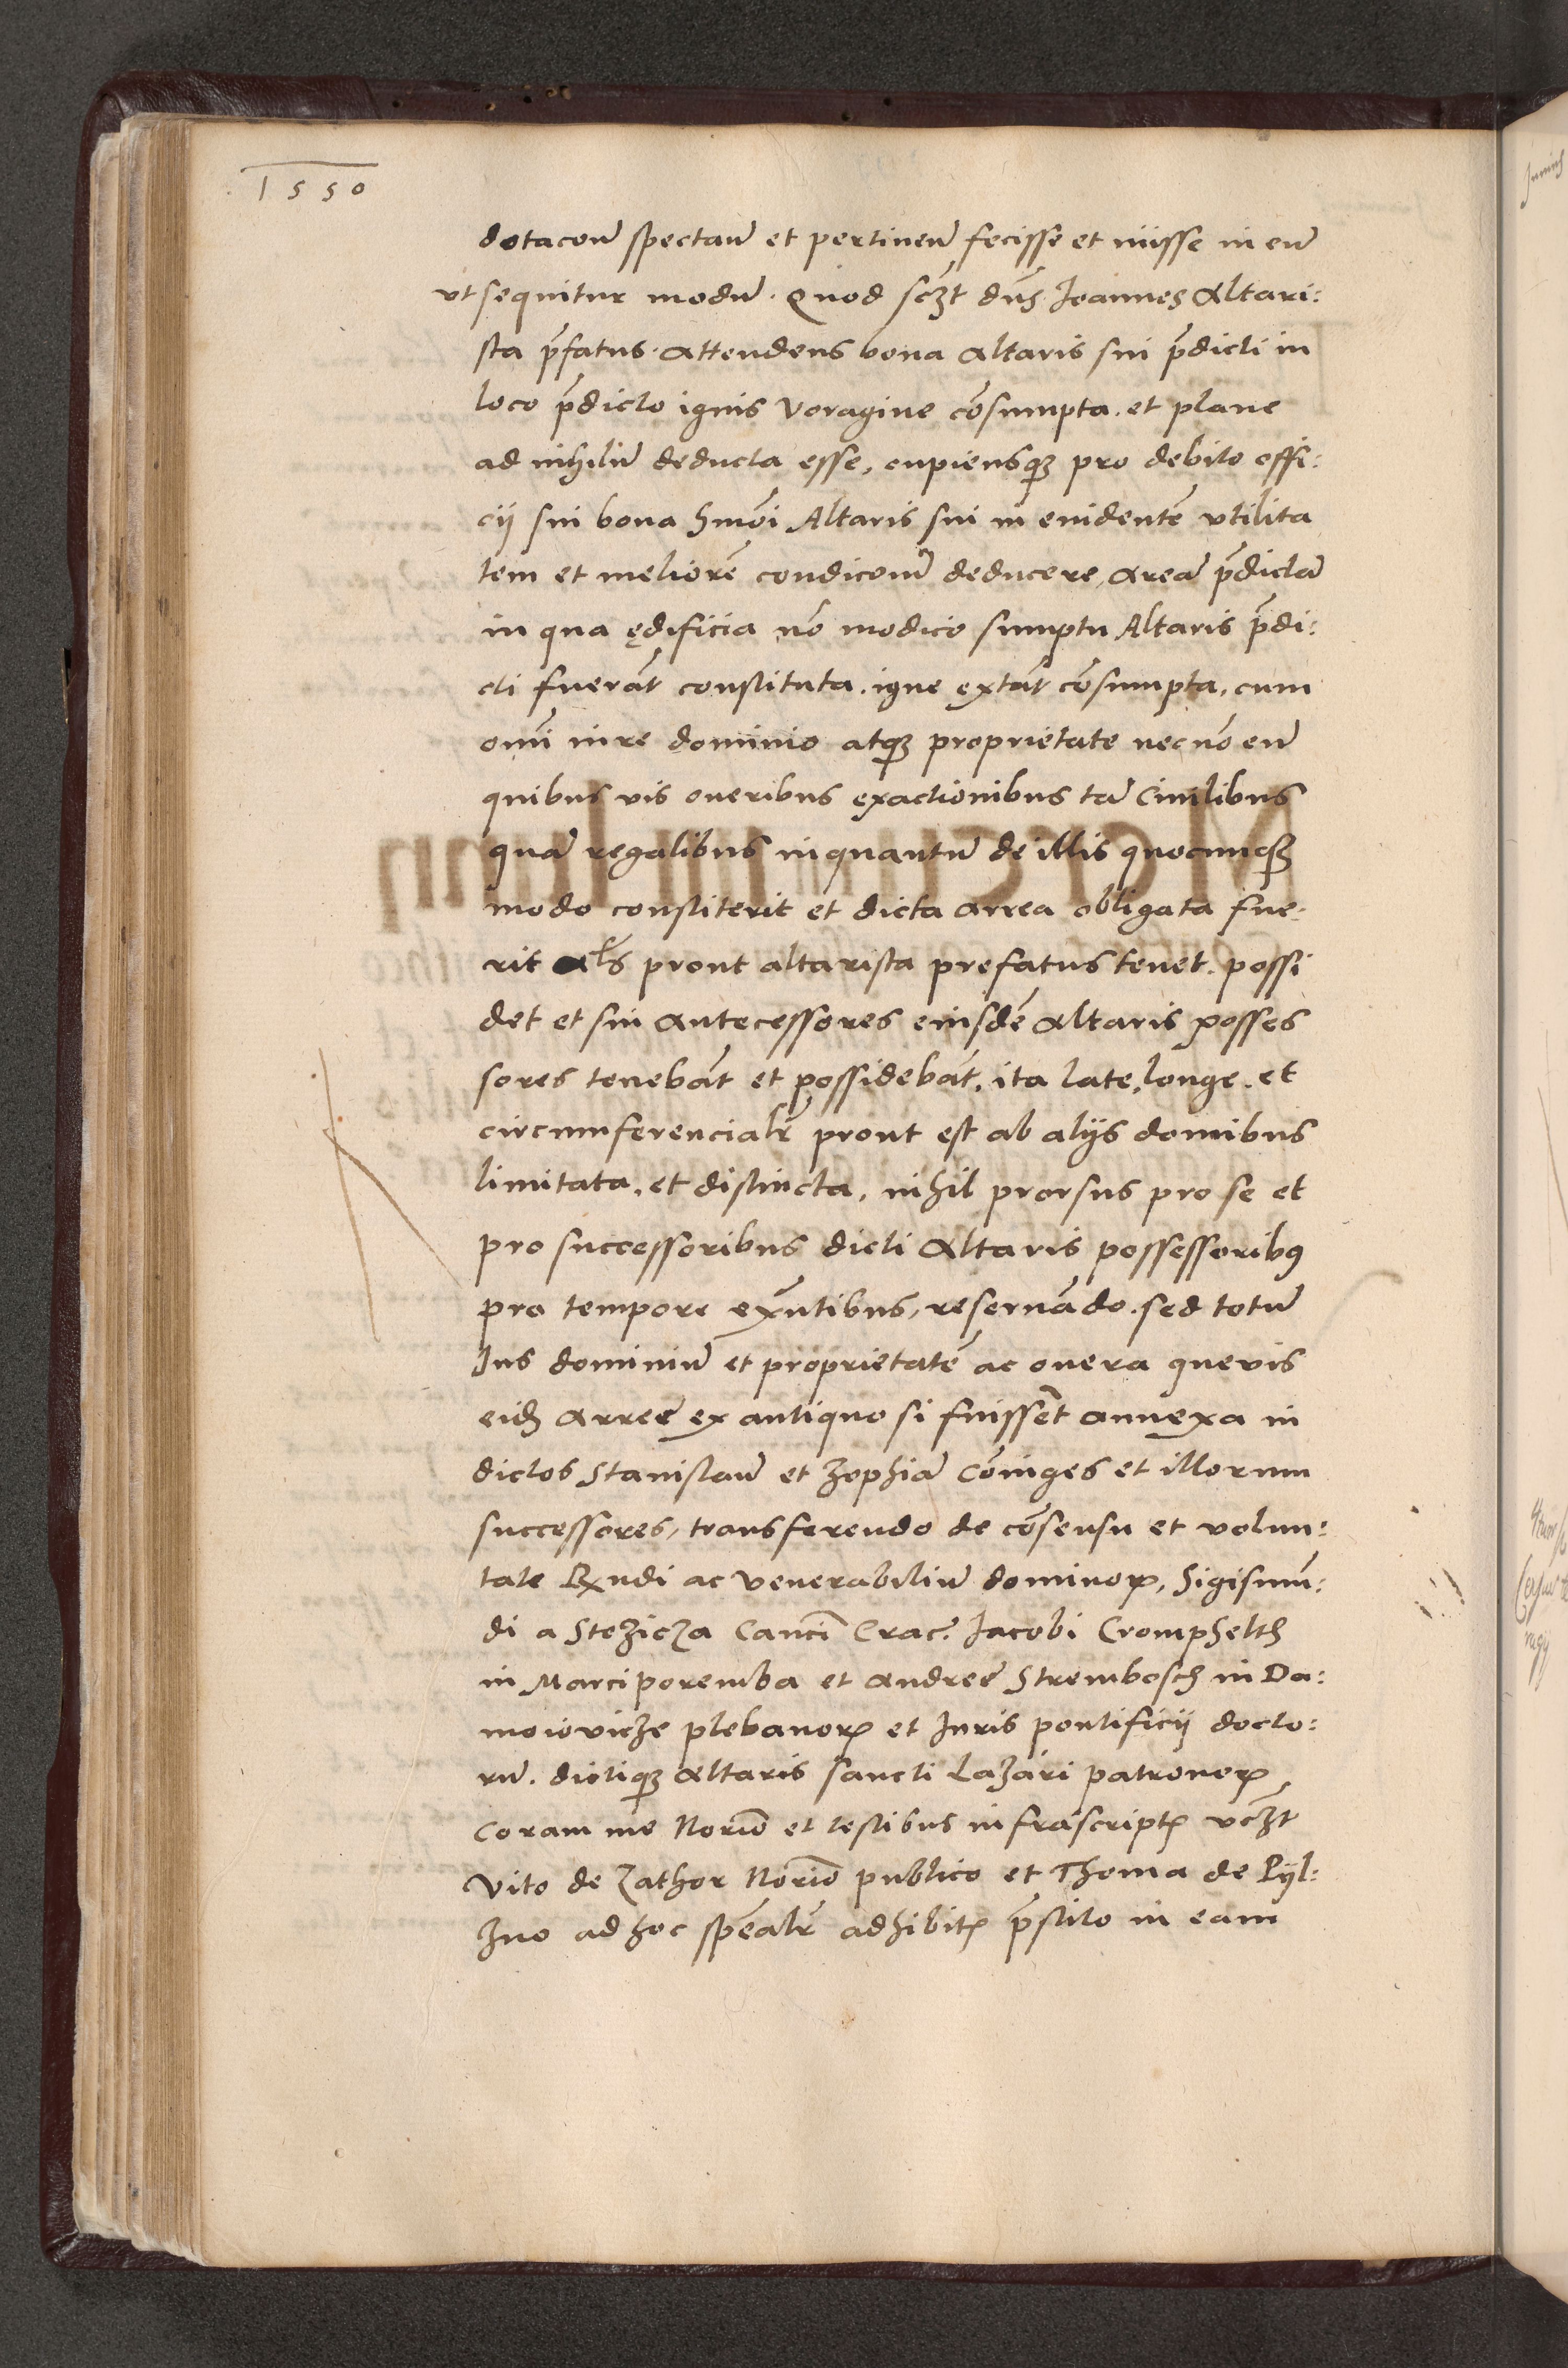 1550
dotacoẽm spectaũ et pertineũ fecisse et iniisse in eũ
vt sequitur modũ. Quod sczt dñs Joannes Altari:
sta p̃fatus. Attendens bona Altaris sui p̃dicti in
loco p̃dicto ignis voragine cõsumpta. et plane
ad nihilũ deducta esse, cupiensqȝ pro debito offi:
cij sui bona hmõi Altaris sui in euidentẽ vtilita
tem et meliorẽ condicoñ deducere, areã p̃dictã
in qua ędificia nõ modico sumptu Altaris p̃di:
cti fuerãt constituta. igne extãt cõsumpta, cum
omñi iure dominio atqȝ proprietate necnõ cũ
quibus vis oneribus exactionibus tã Ciuilibus
quã regalibus inquantũ de illis quocunqȝ
modo constiterit et dicta arrea obligata fue.
rit als prout altarista prefatus tenet. possi
det et sui antecessores eiusdẽ altaris posses
sores tenebãt et possidebãt, ita late, longe. et
circumferencialr̃ prout est ab alijs domibus
limitata, et distincta, nihil prorsus pro se et
pro successoribus dicti Altaris possessoribꝰ
pro tempore exñtibus, reseruãdo. sed totũ
Jus dominiũ et proprietatẽ ac onera queuis
eidẽ arreę ex antiquo si fuissẽt annexa in
dictos Stanislaũ et Zophiã cõiuges et illorum
successores, transferendo de cõsensu et volun:
tate Rxndi ac venerabiliũ dominoꝝ, Sigismũ:
di a Stezicza Canci Crac. Jacobi Cromphelth
in Marciporemba et Andreę Strembosch in Da:
moiovicze plebanoꝝ et Juris pontificij docto:
rũ. dictiqȝ Altaris sancti Lazari patronoꝝ
Coram me Norio et testibus infrascriptꝭ vczt
Vito de Zathor Norio publico et Thoma de Pyl:
zno ad hoc spẽalr̃ adhibitꝭ p̃stito in eam